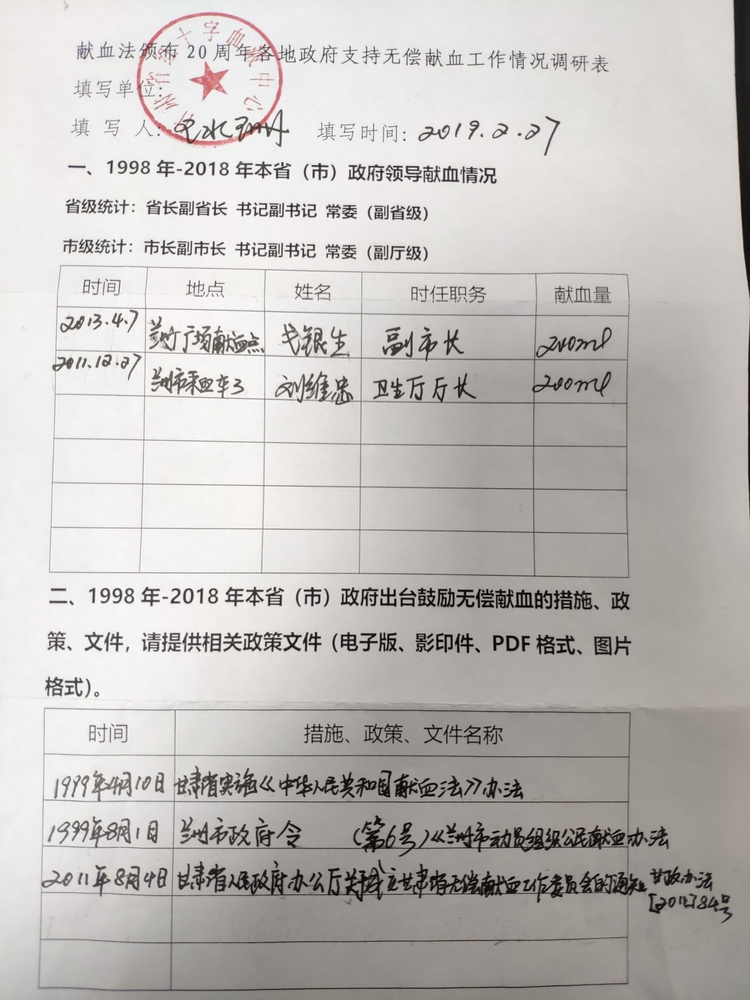 献血法颁布20周年各地政府支持无偿献血工作情况调研表
填写单位:
甘肃省红十字血液中心
填 写 人: 填写时间: 2019.2.27
一、1998年-2018年本省（市）政府领导献血情况
省级统计：省长副省长 书记副书记 常委（副省级）
市级统计：市长副市长 书记副书记 常委（副厅级）
时间 地点 姓名 时任职务 献血量
2013.4.7 兰州广场献血点 弋银生 副市长 200ml
2011.12.27 兰州市采血车 刘维忠 卫生厅厅长 200ml
二、1998年-2018年本省（市）政府出台鼓励无偿献血的措施、政
策、文件，请提供相关政策文件（电子版、影印件、PDF格式、图片
格式）。
时间 措施、政策、文件名称
1999年4月10日 甘肃省实施《中华人民共和国献血法》办法
1999年8月1日 兰州市政府令 （第6号）《兰州市动员组织公民献血办法
2011年8月4日 甘肃省人民政府办公厅关于成立甘肃省无偿献血工作委员会的通知 甘政办法
[2011]84号